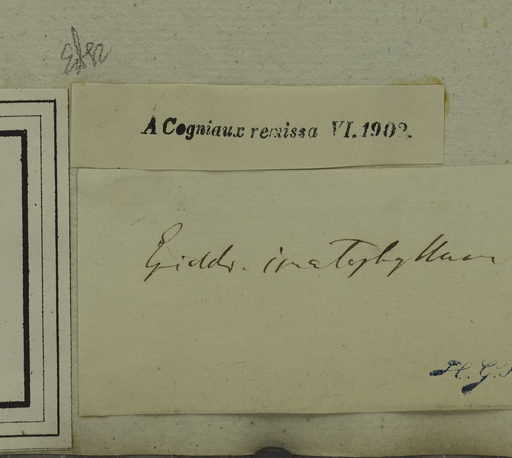 A Cogniaux remissa VI. 1902.
Epiddr. imatophyllum
H. G.